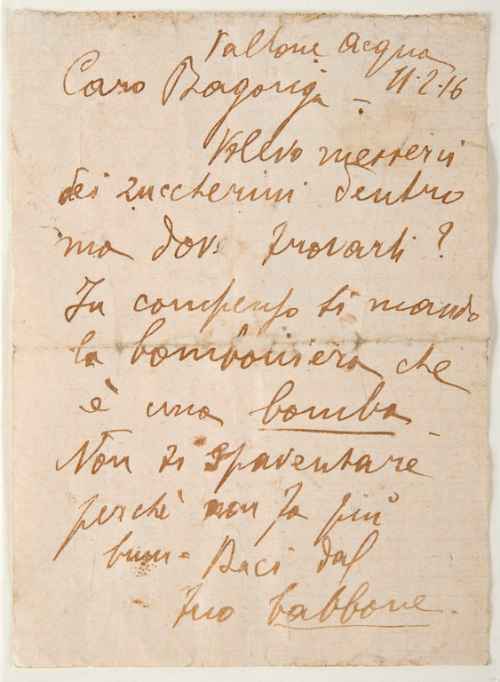 Vallone Acqua
11.2.16
Caro Bagonga -
Volevo metterci
dei zuccherini dentro
ma dove trovarli?
In compenso ti mando
la bomboniera che
è una bomba -
Non ti spaventare
perchè non fa più
bum - Baci dal
tuo babbone -